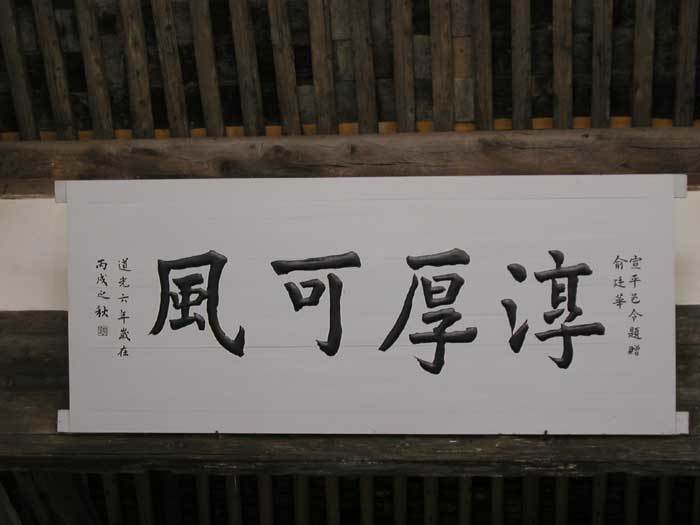 宣平邑令題贈
俞廷華
淳厚可風
道光六年歲在
丙戌之秋